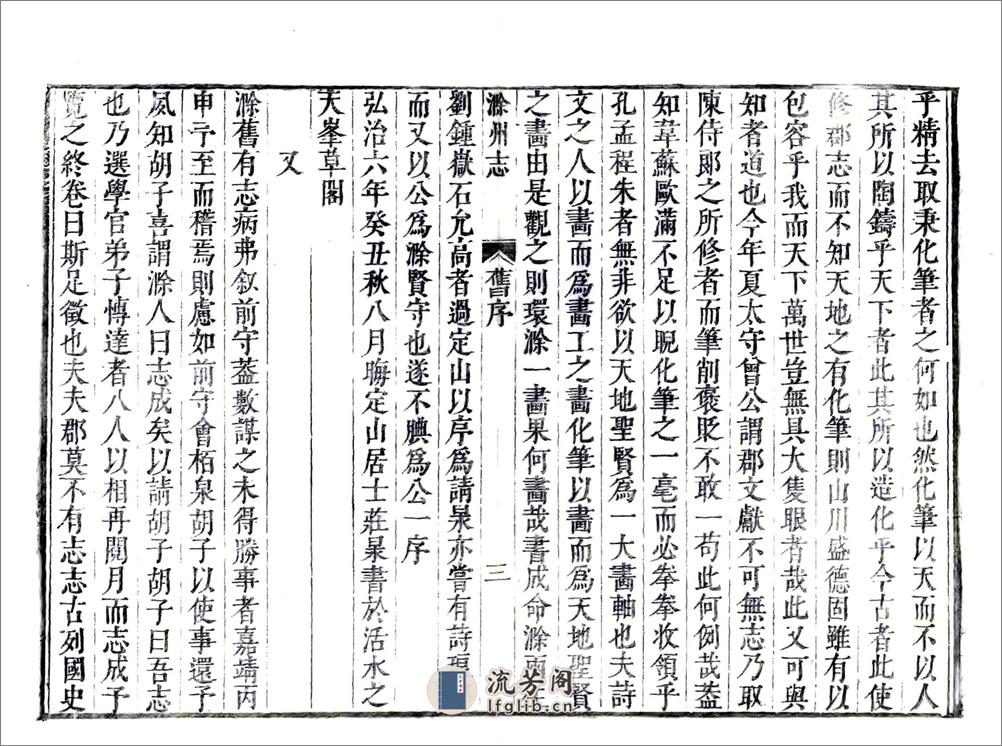 乎精去取秉化筆者之何如也然化筆以天而不以人
其所以陶鑄乎天下者此其所以造化乎今古者此使
修郡志而不知天地之有化筆則山川盛德固雖有以
包容乎我而天下萬世豈無具大隻眼者哉此又可與
知者道也今年夏太守曾公謂郡文獻不可無志乃取
陳侍郎之所修者而筆削褒貶不敢一苟此何例哉葢
知韋蘇歐滿不足以睨化筆之一毫而必拳拳收領乎
孔孟程朱者無非欲以天地聖賢爲一大畫軸也夫詩
文之人以畫而爲畫工之畫化筆以畫而爲天地聖賢
之畫由是觀之則環滁一畫果何畫哉書成命滁兩
滁州志
舊序
三
劉鍾嶽石允高者過定山以序爲請㫤亦嘗有詩
而又以公爲滁賢守也遂不腆爲公一序
弘治六年癸丑秋八月晦定山居士莊㫤書於活水之
天峯草閣
又
滁舊有志病弗叙前守葢數謀之未得勝事者嘉靖丙
申予至而稽焉則慮如前守會栢泉胡子以使事還予
夙知胡子喜謂滁人曰志成矣以請胡子胡子曰吾志
也乃選學官弟子博達者八人以相再閱月而志成予
覽之終卷曰斯足徵也夫夫郡莫不有志志古列國史
流芳阁
lfglib.cn